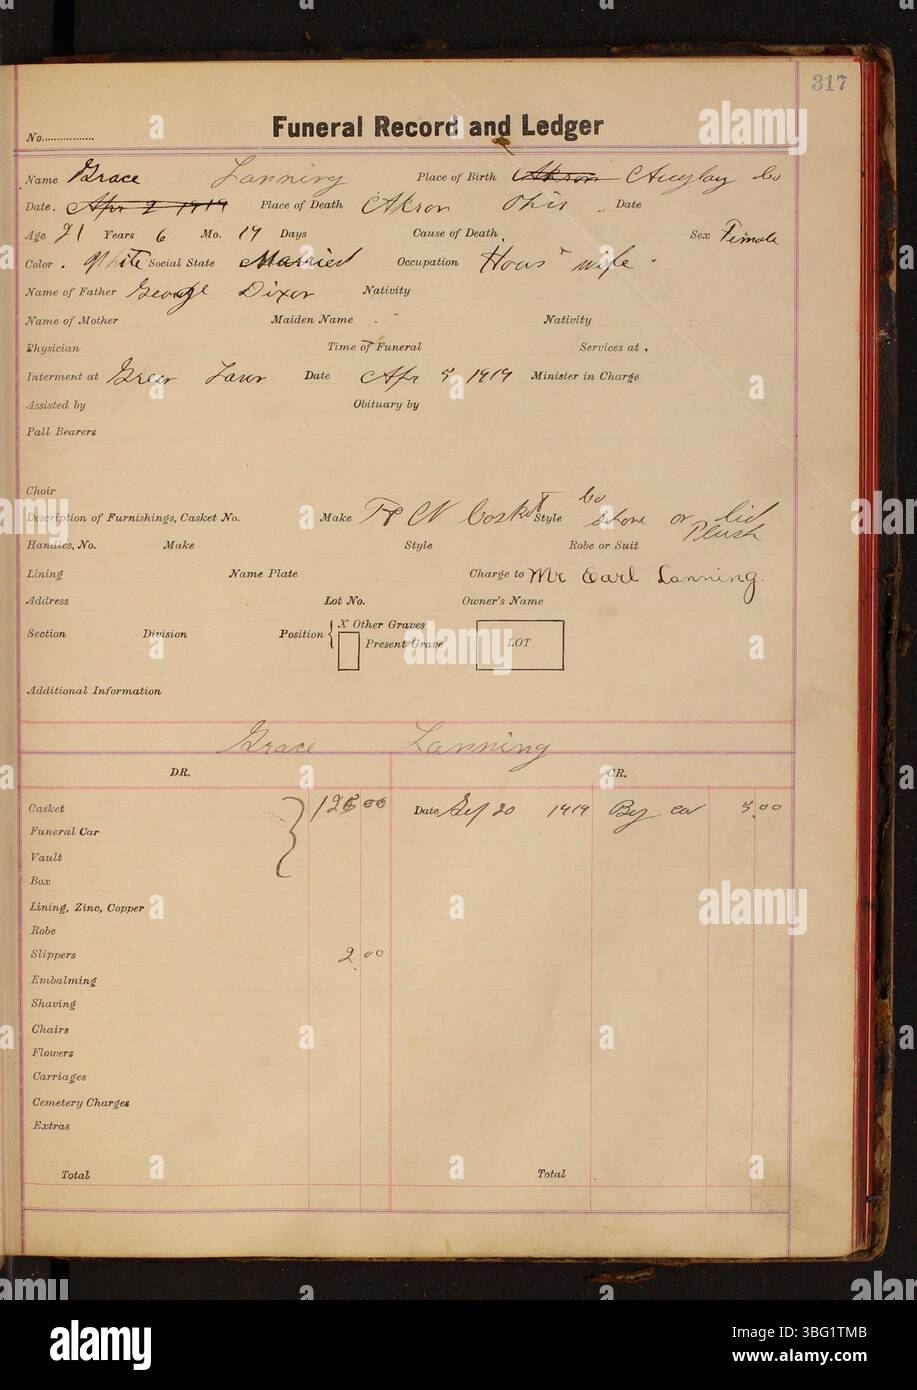 317
Funeral Record and Ledger
No.
Name Grace Lanning Place of Birth Akron Auglay Co
Date. Apr 2 1919 Place of Death Akron Ohio Date
Age 21 Years 6 Mo. 14 Days Cause of Death Sex Female
Color. White Social State Married Occupation Hous wife
Name of Father George Dixon Nativity
Name of Mother Maiden Name Nativity
Physician Time of Funeral Services at.
Interment at Green Lawn Date Apr 5 1919 Minister in Charge
Assisted by Obituary by
Pall Bearers
Choir
Co
Description of Furnishings, Casket No. Make Casket Style or lid
Plush
Handles, No. Make Style Robe or Suit
Lining Name Plate Charge to Mr Earl Lanning.
Address Lot No. Owner's Name
Section Division Position X Other Graves
Present Grave LOT
Additional Information
Grace Lanning
DR. CR.
Casket 125 00 Date Sep 20 1919 By 5.00
Funeral Car
Vault
Box
Lining, Zinc, Copper
Robe
Slippers 2.00
Embalming
Shaving
Chairs
Flowers
Carriages
Cemetery Charges
Extras
Total Total
alamy
alamy
Image ID: 3BG1TMB
www.alamy.com